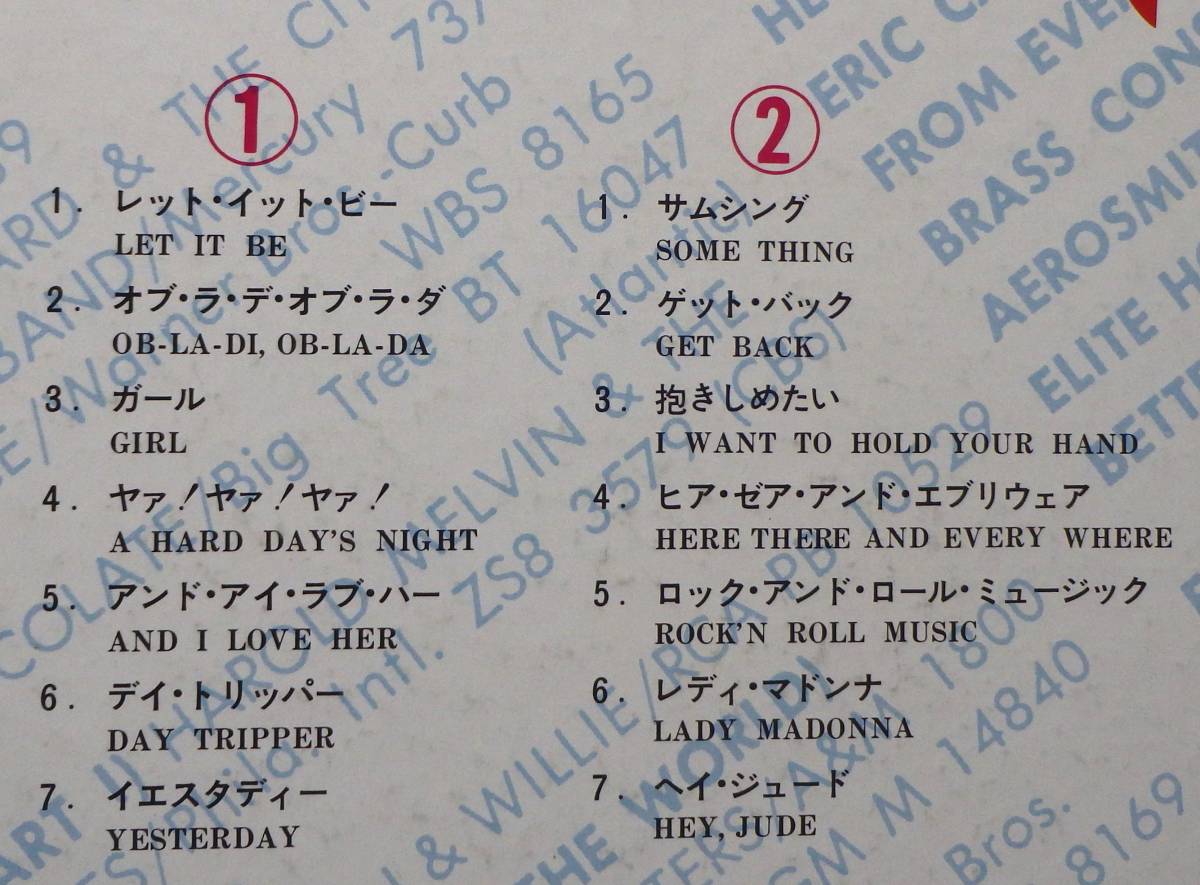 1
1. レット・イット・ビー
LET IT BE
2. オブ・ラ・デ・オブ・ラ・ダ
OB-LA-DI, OB-LA-DA
3. ガール
GIRL
4. ヤァ!ヤァ!ヤァ!
A HARD DAY'S NIGHT
5. アンド・アイ・ラブ・ハー
AND I LOVE HER
6. デイ・トリッパー
DAY TRIPPER
7. イエスタディー
YESTERDAY
2
1. サムシング
SOME THING
2. ゲット・バック
GET BACK
3. 抱きしめたい
I WANT TO HOLD YOUR HAND
4. ヒア・ゼア・アンド・エブリウェア
HERE THERE AND EVERY WHERE
5. ロック・アンド・ロール・ミュージック
ROCK'N ROLL MUSIC
6. レディ・マドンナ
LADY MADONNA
7. ヘイ・ジュード
HEY, JUDE
& THE
BAND/Mercury 737
/Warner Bros.-Curb
WBS 8165
COLATE/Big Tree BT 16047
(Atlantic)
HAROLD MELVIN & THE
Phila. Intl. ZS8 3579 (CBS)
& WILLIE/RCA PB 10529
THE WORLD!
/A&M 1800
M 14840
Bros. 8169
ERIC
FROM
BRASS
AEROSMIT
ELITE
BETTE